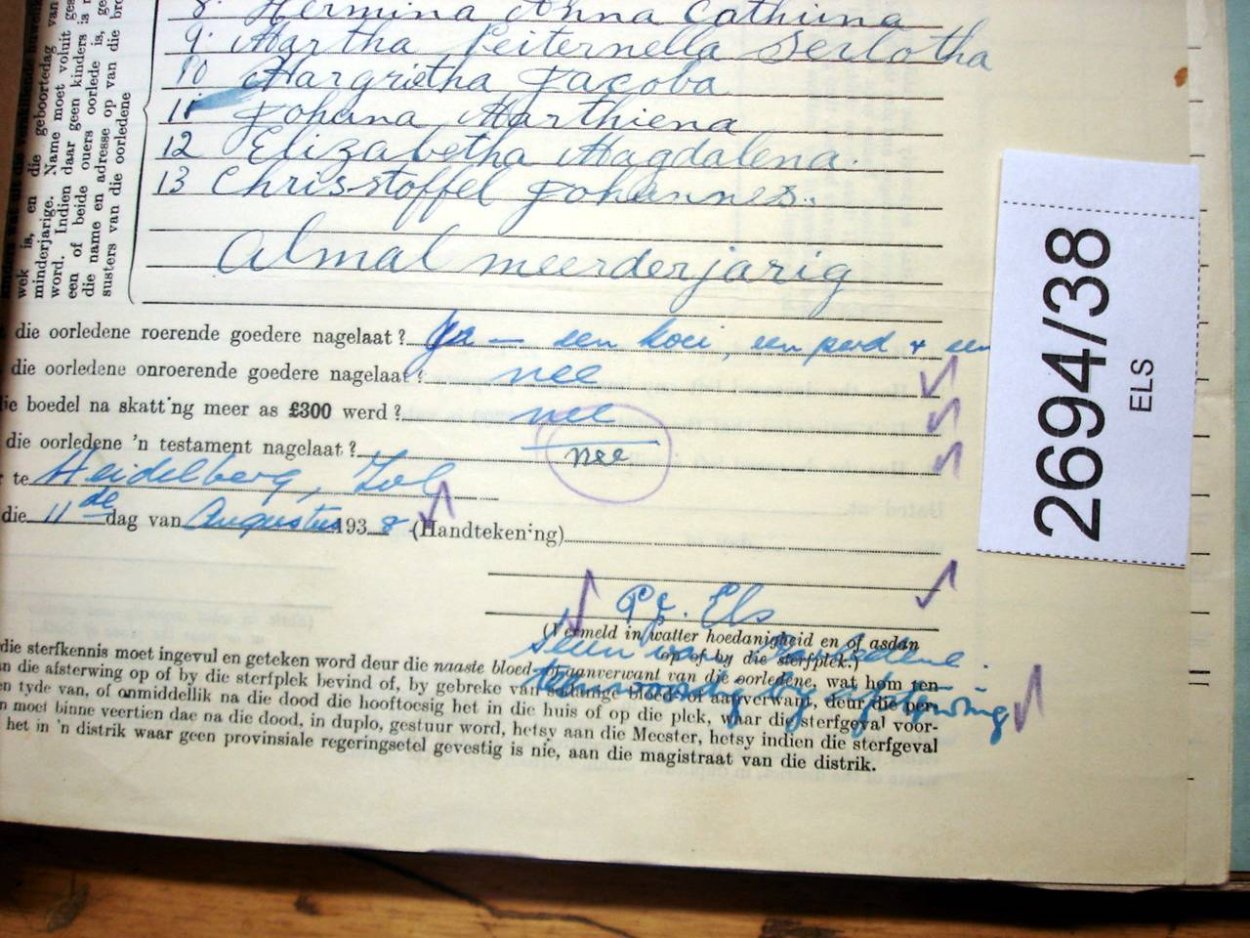 8. Hermina Anna Cathrina
9. Martha Peiternella Serlotha
10 Margrietha Jacoba
11 Johana Marthiena
12 Elizabetha Magdalena.
13 Christoffel Johannes.
Almal meerderjarig
die geboortedag van
wek is, en
minderjarige. Name moet voluit
word. Indien daar geen kinders is
een of beide ouers oorlede is,
die name en adresse op van die
susters van die oorledene
die oorledene roerende goedere nagelaat? Ja — een koei, een perd + een
die oorledene onroerende goedere nagelaat? nee
die boedel na skatt'ng meer as £300 werd? nee
die oorledene 'n testament nagelaat? nee
te Heidelberg,
die 11de dag van Augustus 1938 (Handteken'ng)
P.J. Els
(Vermeld in watter hoedanigheid en of asdan
op of by die sterfplek.)
seun van oorledene.
teenwoordig by afsterwing
die sterfkennis moet ingevul en geteken word deur die naaste bloed- of aanverwant van die oorledene, wat hom ten
die afsterwing op of by die sterfplek bevind of, by gebreke van sodanige bloed- of aanverwant, deur die per-
tyde van, of onmiddellik na die dood die hooftoesig het in die huis of op die plek, waar die sterfgeval voor-
moet binne veertien dae na die dood, in duplo, gestuur word, hetsy aan die Meester, hetsy indien die sterfgeval
het in 'n distrik waar geen provinsiale regeringsetel gevestig is nie, aan die magistraat van die distrik.
2694/38
ELS